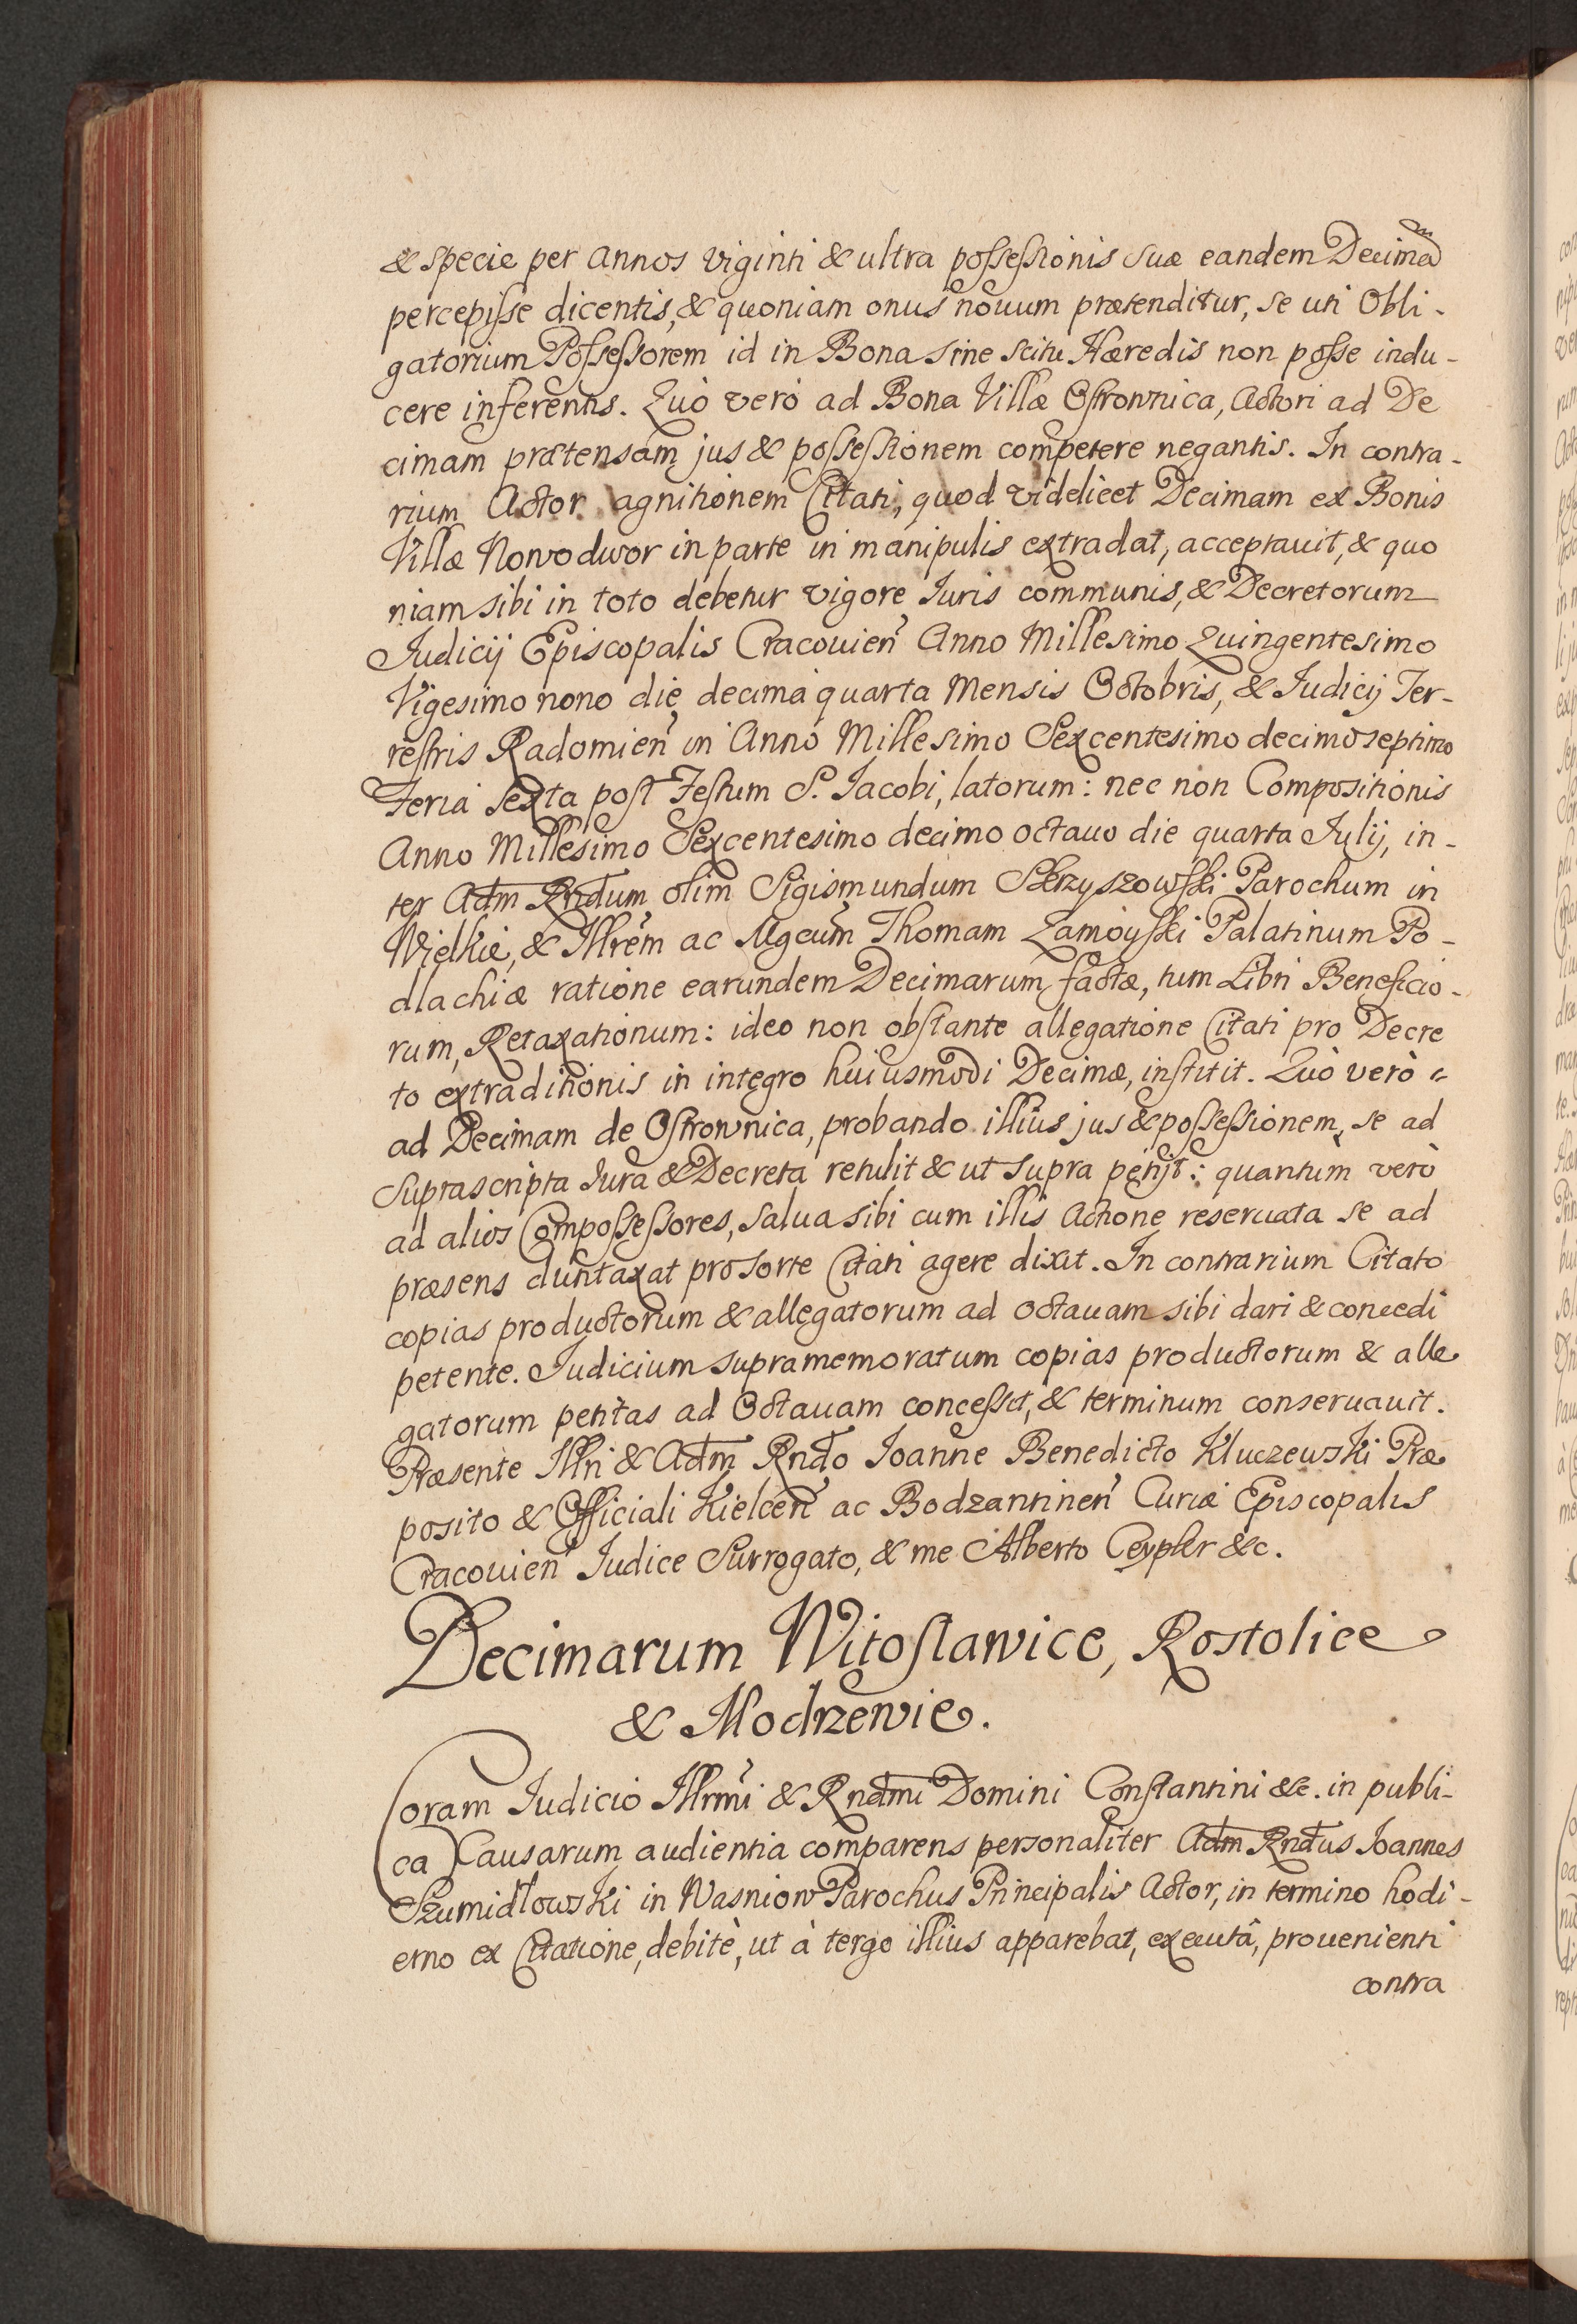 & specie per annos viginti & ultra possessionis suæ eandem Decimam
percepisse dicentis, & quoniam onus novum prætenditur, se uti Obli-
gatorium Possessorem id in Bona sine scitu Hæredis non posse indu-
cere inferentis. Quò verò ad Bona Villæ Ostrownica, Actori ad De
cimam prætensam jus & possessionem competere negantis. In contra-
rium Actor agnitionem Citati, quod videlicet Decimam ex Bonis
Villæ Nowodwor in parte in manipulis extradat, acceptauit, & quo
niam sibi in toto debetur vigore Iuris communis, & Decretorum
Judicij Episcopalis Cracouien̄ Anno Millesimo Quingentesimo
Vigesimo nono die decima quarta Mensis Octobris, & Judicij Ter-
restris Radomien̄ in Anno Millesimo Sexcentesimo decimo septimo
Feria sexta post Festum S. Jacobi, latorum: nec non Compositionis
Anno Millesimo Sexcentesimo decimo octauo die quarta Julij, in-
ter Adm Rndum olim Sigismundum Skrzyszowski Parochum in
Wielkie, & Illrem ac Mgcum Thomam Zamoyski Palatinum Po-
dlachiæ ratione earundem Decimarum factæ, tum Libri Beneficio-
rum, Retaxationum: ideo non obstante allegatione Citati pro Decre
to extraditionis in integro huiusmodi Decimæ, institit. Quò verò
ad Decimam de Ostrownica, probando illius jus & possessionem, se ad
suprascripta Iura & Decreta retulit & ut supra petijt: quantum verò
ad alios Compossessores, salua sibi cum illis Actione reseruata se ad
præsens duntaxat pro sorte Citati agere dixit. In contrarium Citato
copias productorum & allegatorum ad octauam sibi dari & concedi
petente. Judicium supramemoratum copias productorum & alle
gatorum petitas ad Octauam concessit, & terminum conseruauit.
Præsente Illri & Adm Rndo Joanne Benedicto Kluczewski Præ
posito & Officiali Kielcen̄ ac Bodzantinen̄ Curiæ Episcopalis
Cracouien̄ Judice Surrogato, & me Alberto Ceypler &c.
Decimarum Witoslawice, Rostolice
& Modrzewie.
Coram Judicio Illrmi & Rndmi Domini Constantini &c. in publi-
ca Causarum audientia comparens personaliter Adm Rndus Joannes
Szumidlowski in Wasniow Parochus Principalis Actor, in termino hodi-
erno ex Citatione, debitè, ut à tergo illius apparebat, executâ, prouenienti
contra